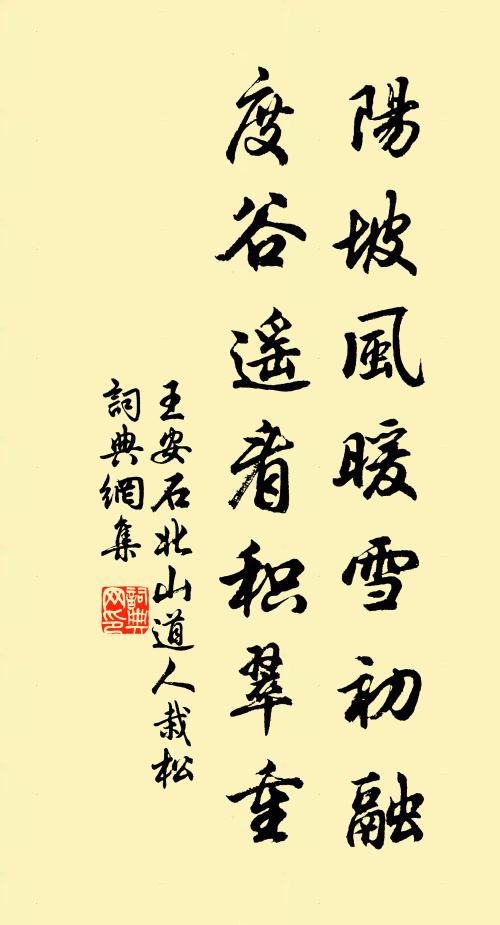 陽坡風暖雪初融
度谷遥看积翠重
王安石北山道人栽松
詞典網集
詞典
网印